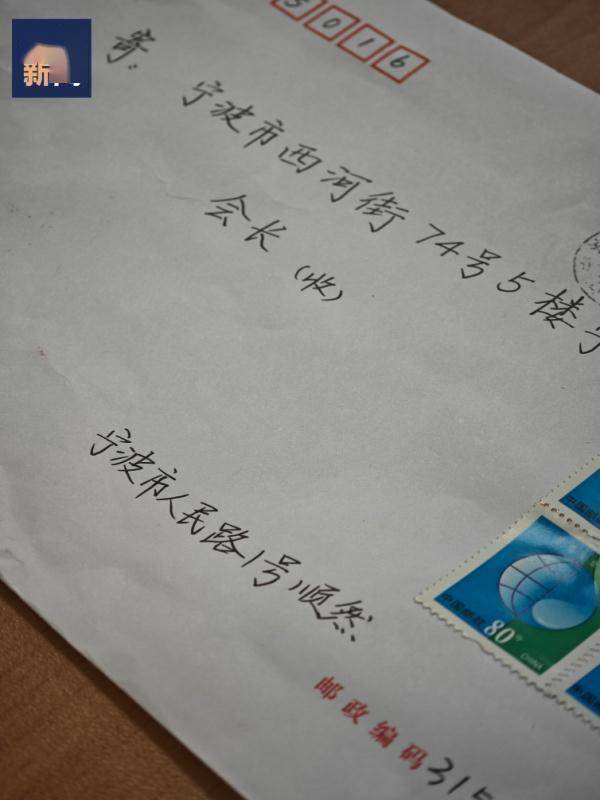 新
5016
寄:
宁波市西河街74号5楼宁
会长(收)
宁波市人民路1号,顺然
中国邮政
中国邮政
80分
CHINA
中国邮政
邮政编码315